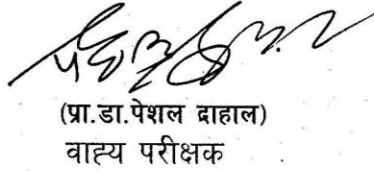 (प्रा.डा.पेशल दाहाल)
वाह्य परीक्षक